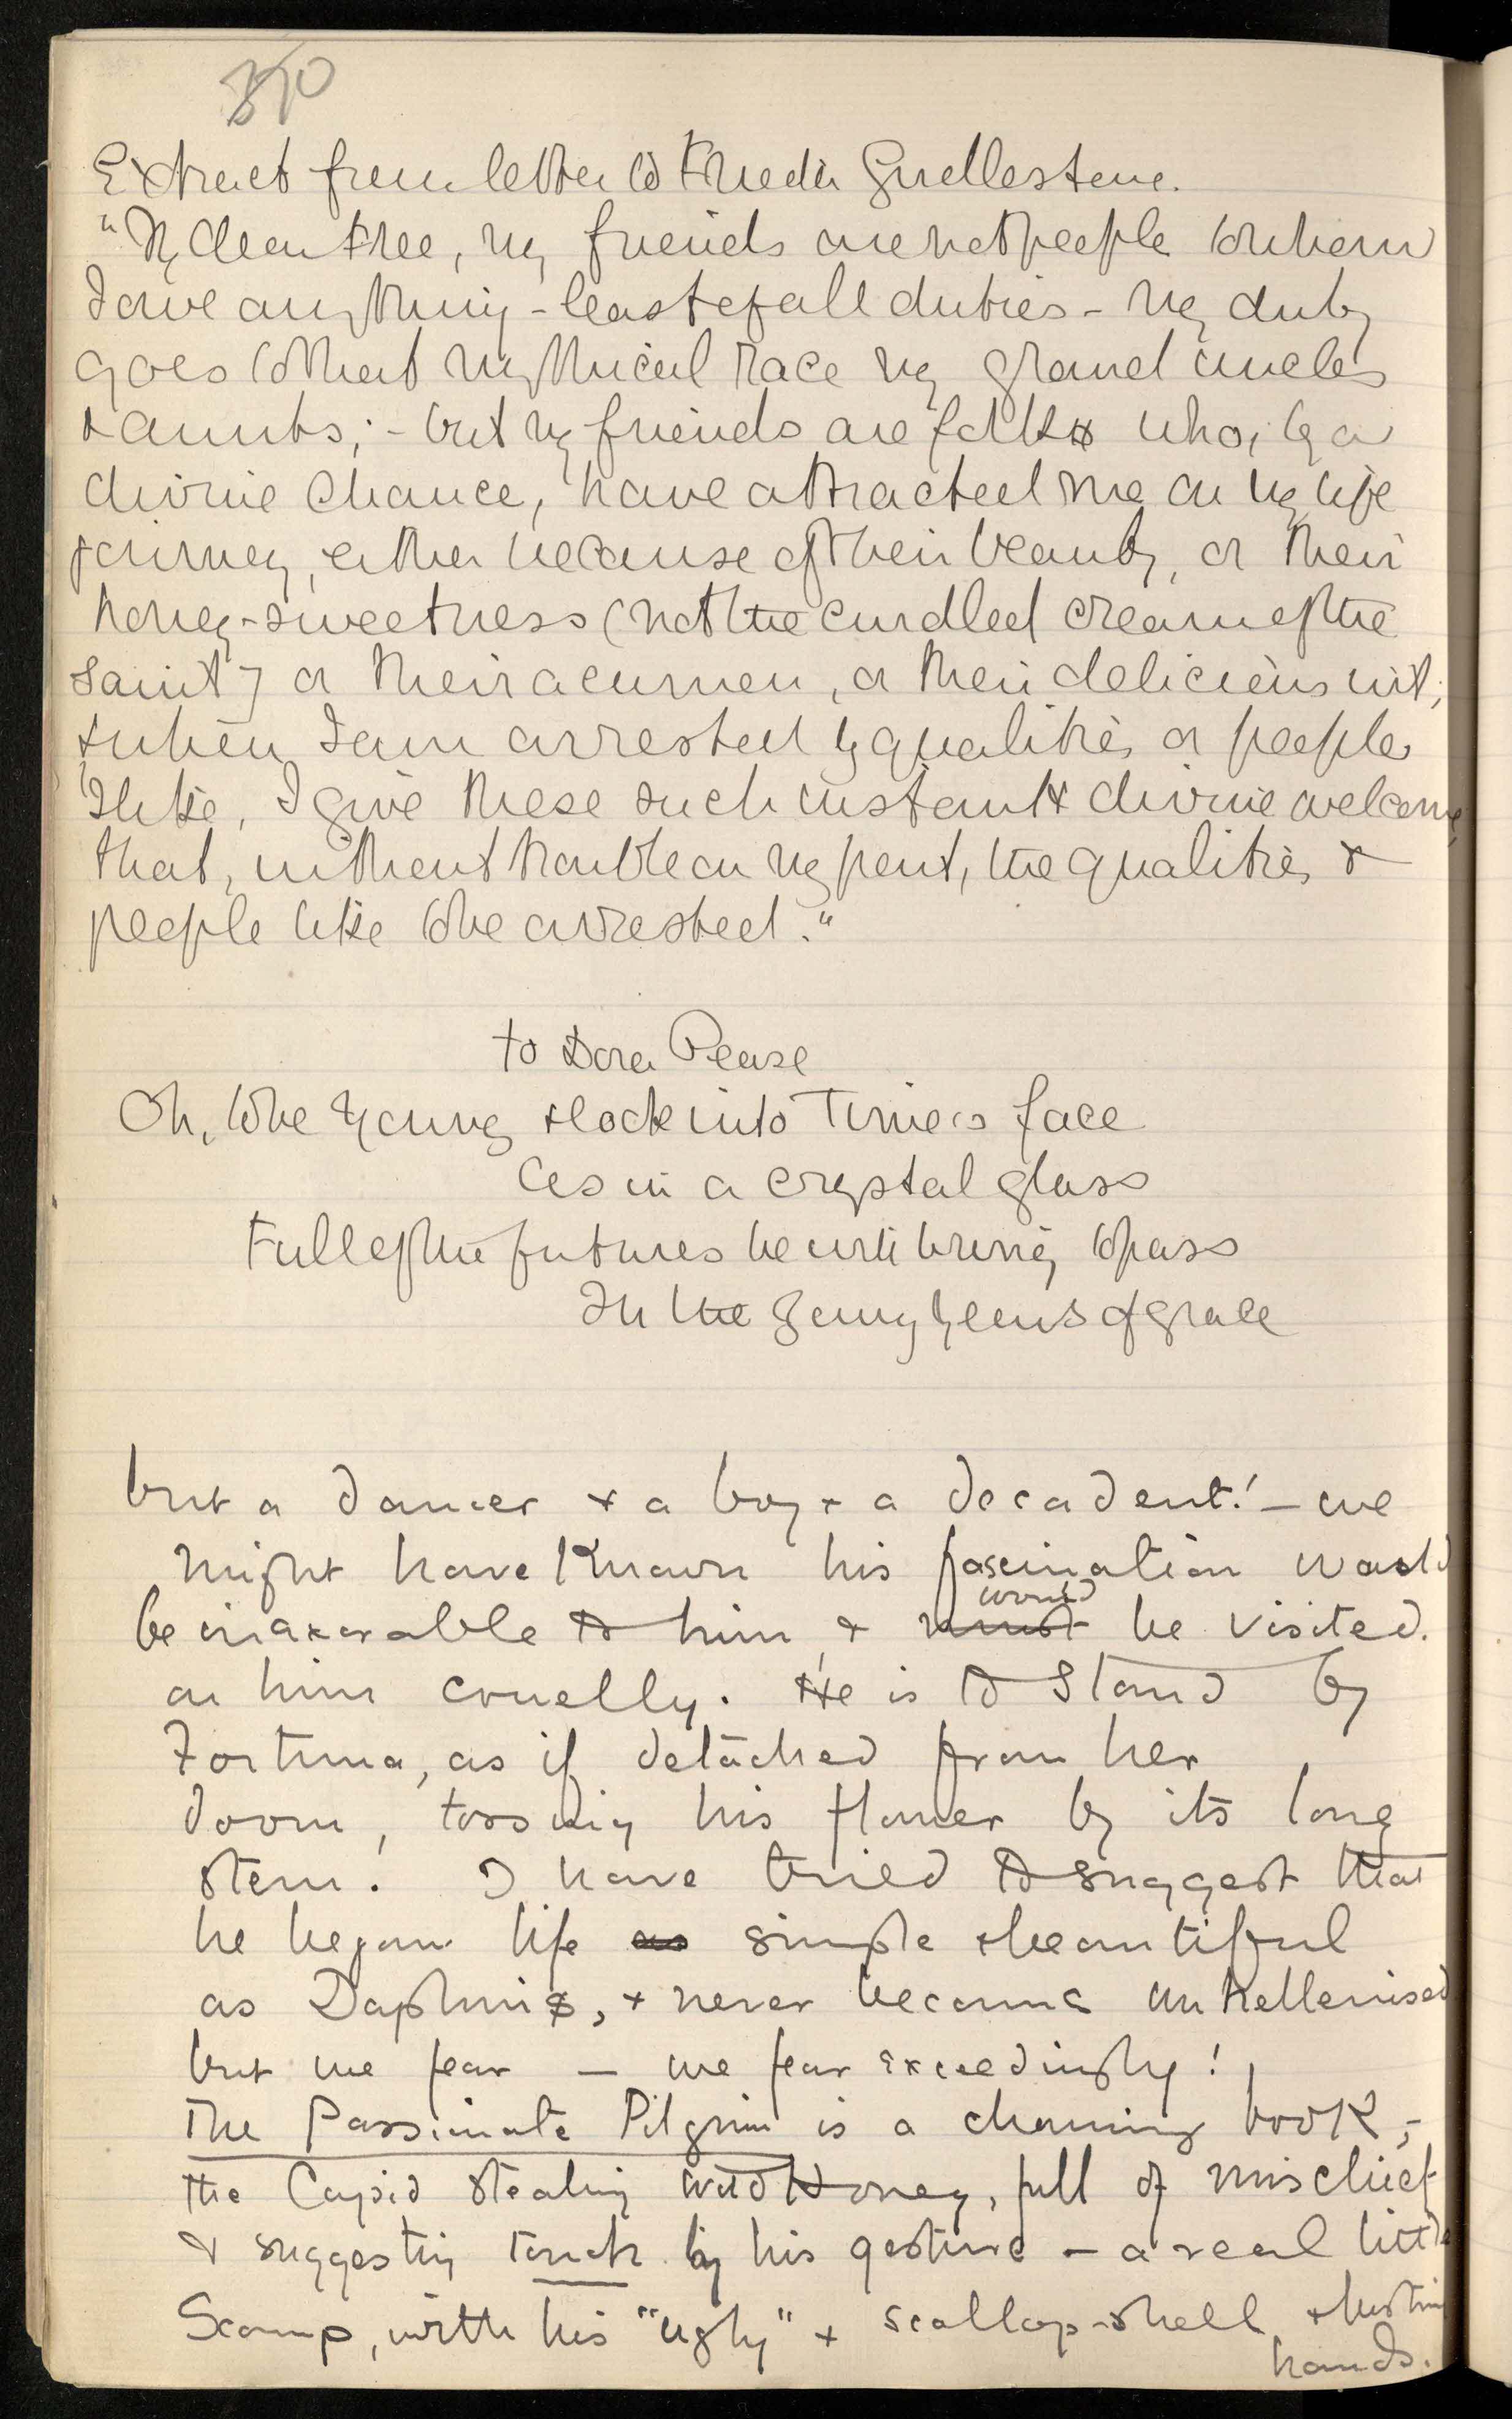 Extract from letter to Frieda Girdlestone.
"My dear Free, my friends are not people to whom
I owe anything - least of all duties - my duty
goes to that mythical race my grand uncles
& aunts; - but my friends are folks who, by a
divine chance, have attracted me on my life
journey, either because of their beauty, or their
honey-sweetness (not the curdled cream of the
saint) or their acumen, or their delicious wit;
& when I am arrested by qualities or people
I like, I give these such instant & divine welcome,
that, without trouble on my part, the qualities &
people like to be arrested."
to Dora Pease
Oh, to be young & look into Time's face
As in a crystal glass
Full of the futures he will bring to pass
In the years of grace
but a dancer & a boy & a decadent! - we
might have known his fascination would
be inexorable to him, & must would be visited
on him cruelly. He is to stand by
Fortuna, as if detached from her
doom, tossing his flower by its long
stem. I have tried to suggest that
he began life as simple & beautiful
as Daphnis, & never became unhellenised
but we fear - we fear exceedingly!
The Passionate Pilgrim is a charming book, -
the Cupid stealing wild Honey, full of mischief
& suggesting touch by his gesture - a real little
Scamp, with his "ugly" & scallop-shell &
hands.